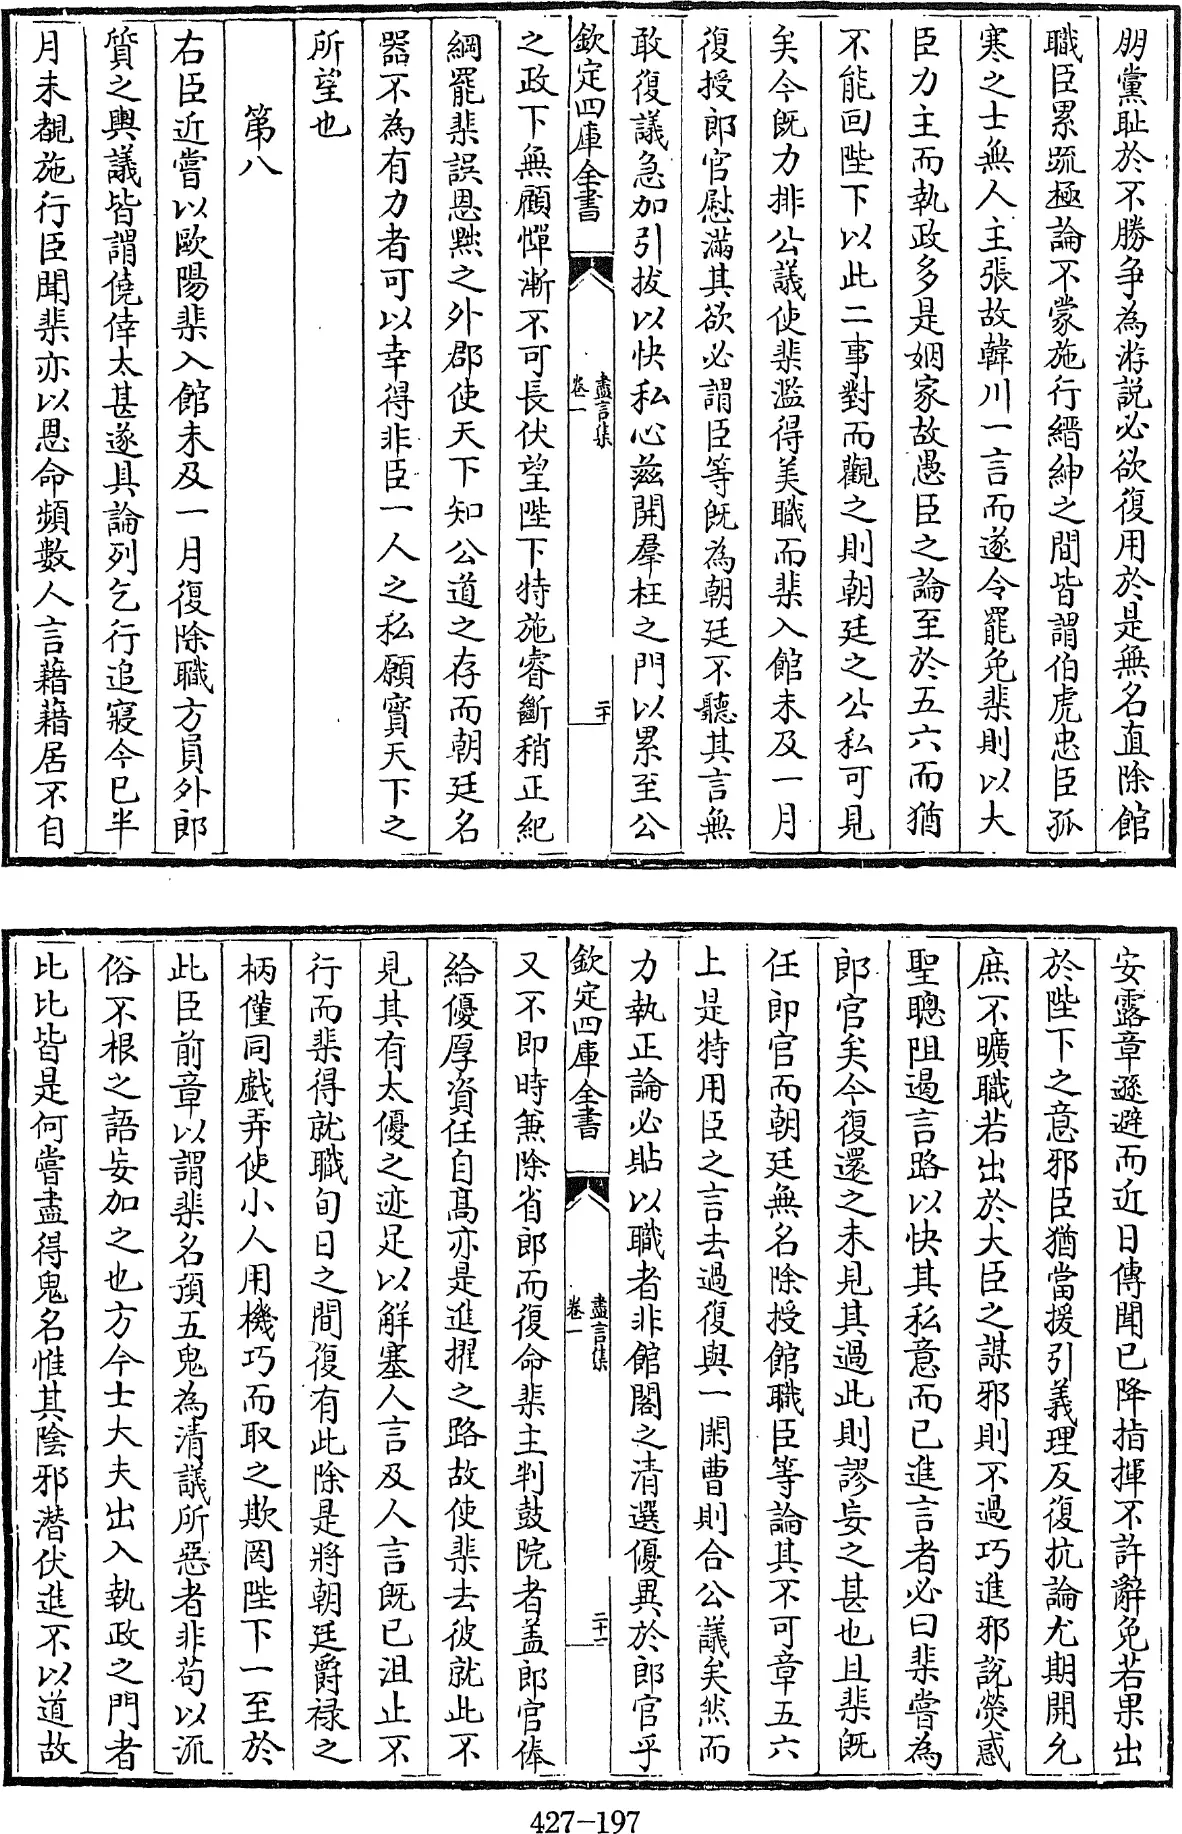 朋黨耻於不勝争為游説必欲復用於是無名直除館
職臣累疏極論不蒙施行縉紳之間皆謂伯虎忠臣孤
寒之士無人主張故韓川一言而遂令罷免棐則以大
臣力主而執政多是姻家故愚臣之論至於五六而猶
不能回陛下以此二事對而觀之則朝廷之公私可見
矣今既力排公議使棐濫得美職而棐入館未及一月
復授郎官慰滿其欲必謂臣等既為朝廷不聽其言無
敢復議急加引拔以快私心兹開羣枉之門以累至公
欽定四庫全書
盡言集
卷一
二十
之政下無顧憚漸不可長伏望陛下特施睿斷稍正紀
綱罷棐誤恩黜之外郡使天下知公道之存而朝廷名
器不為有力者可以幸得非臣一人之私願實天下之
所望也
第八
右臣近嘗以歐陽棐入館未及一月復除職方員外郎
質之輿議皆謂僥倖太甚遂具論列乞行追寢今已半
月未覩施行臣聞棐亦以恩命頻數人言藉藉居不自
安露章遜避而近日傳聞已降指揮不許辭免若果出
於陛下之意邪臣猶當援引義理反復抗論尤期開允
庶不曠職若出於大臣之謀邪則不過巧進邪説熒惑
聖聰阻遏言路以快其私意而已進言者必曰棐嘗為
郎官矣今復還之未見其過此則謬妄之甚也且棐既
任郎官而朝廷無名除授館職臣等論其不可章五六
上是特用臣之言去過復與一閑曹則合公議矣然而
力執正論必貼以職者非館閣之清選優異於郎官乎
欽定四庫全書
盡言集
卷一
二十一
又不即時兼除省郎而復命棐主判鼓院者盖郎官俸
給優厚資任自髙亦是進擢之路故使棐去彼就此不
見其有太優之迹足以解塞人言及人言既已沮止不
行而棐得就職旬日之間復有此除是將朝廷爵禄之
柄僅同戯弄使小人用機巧而取之欺罔陛下一至於
此臣前章以謂棐名預五鬼為清議所惡者非苟以流
俗不根之語妄加之也方今士大夫出入執政之門者
比比皆是何嘗盡得鬼名惟其陰邪潜伏進不以道故
427-197